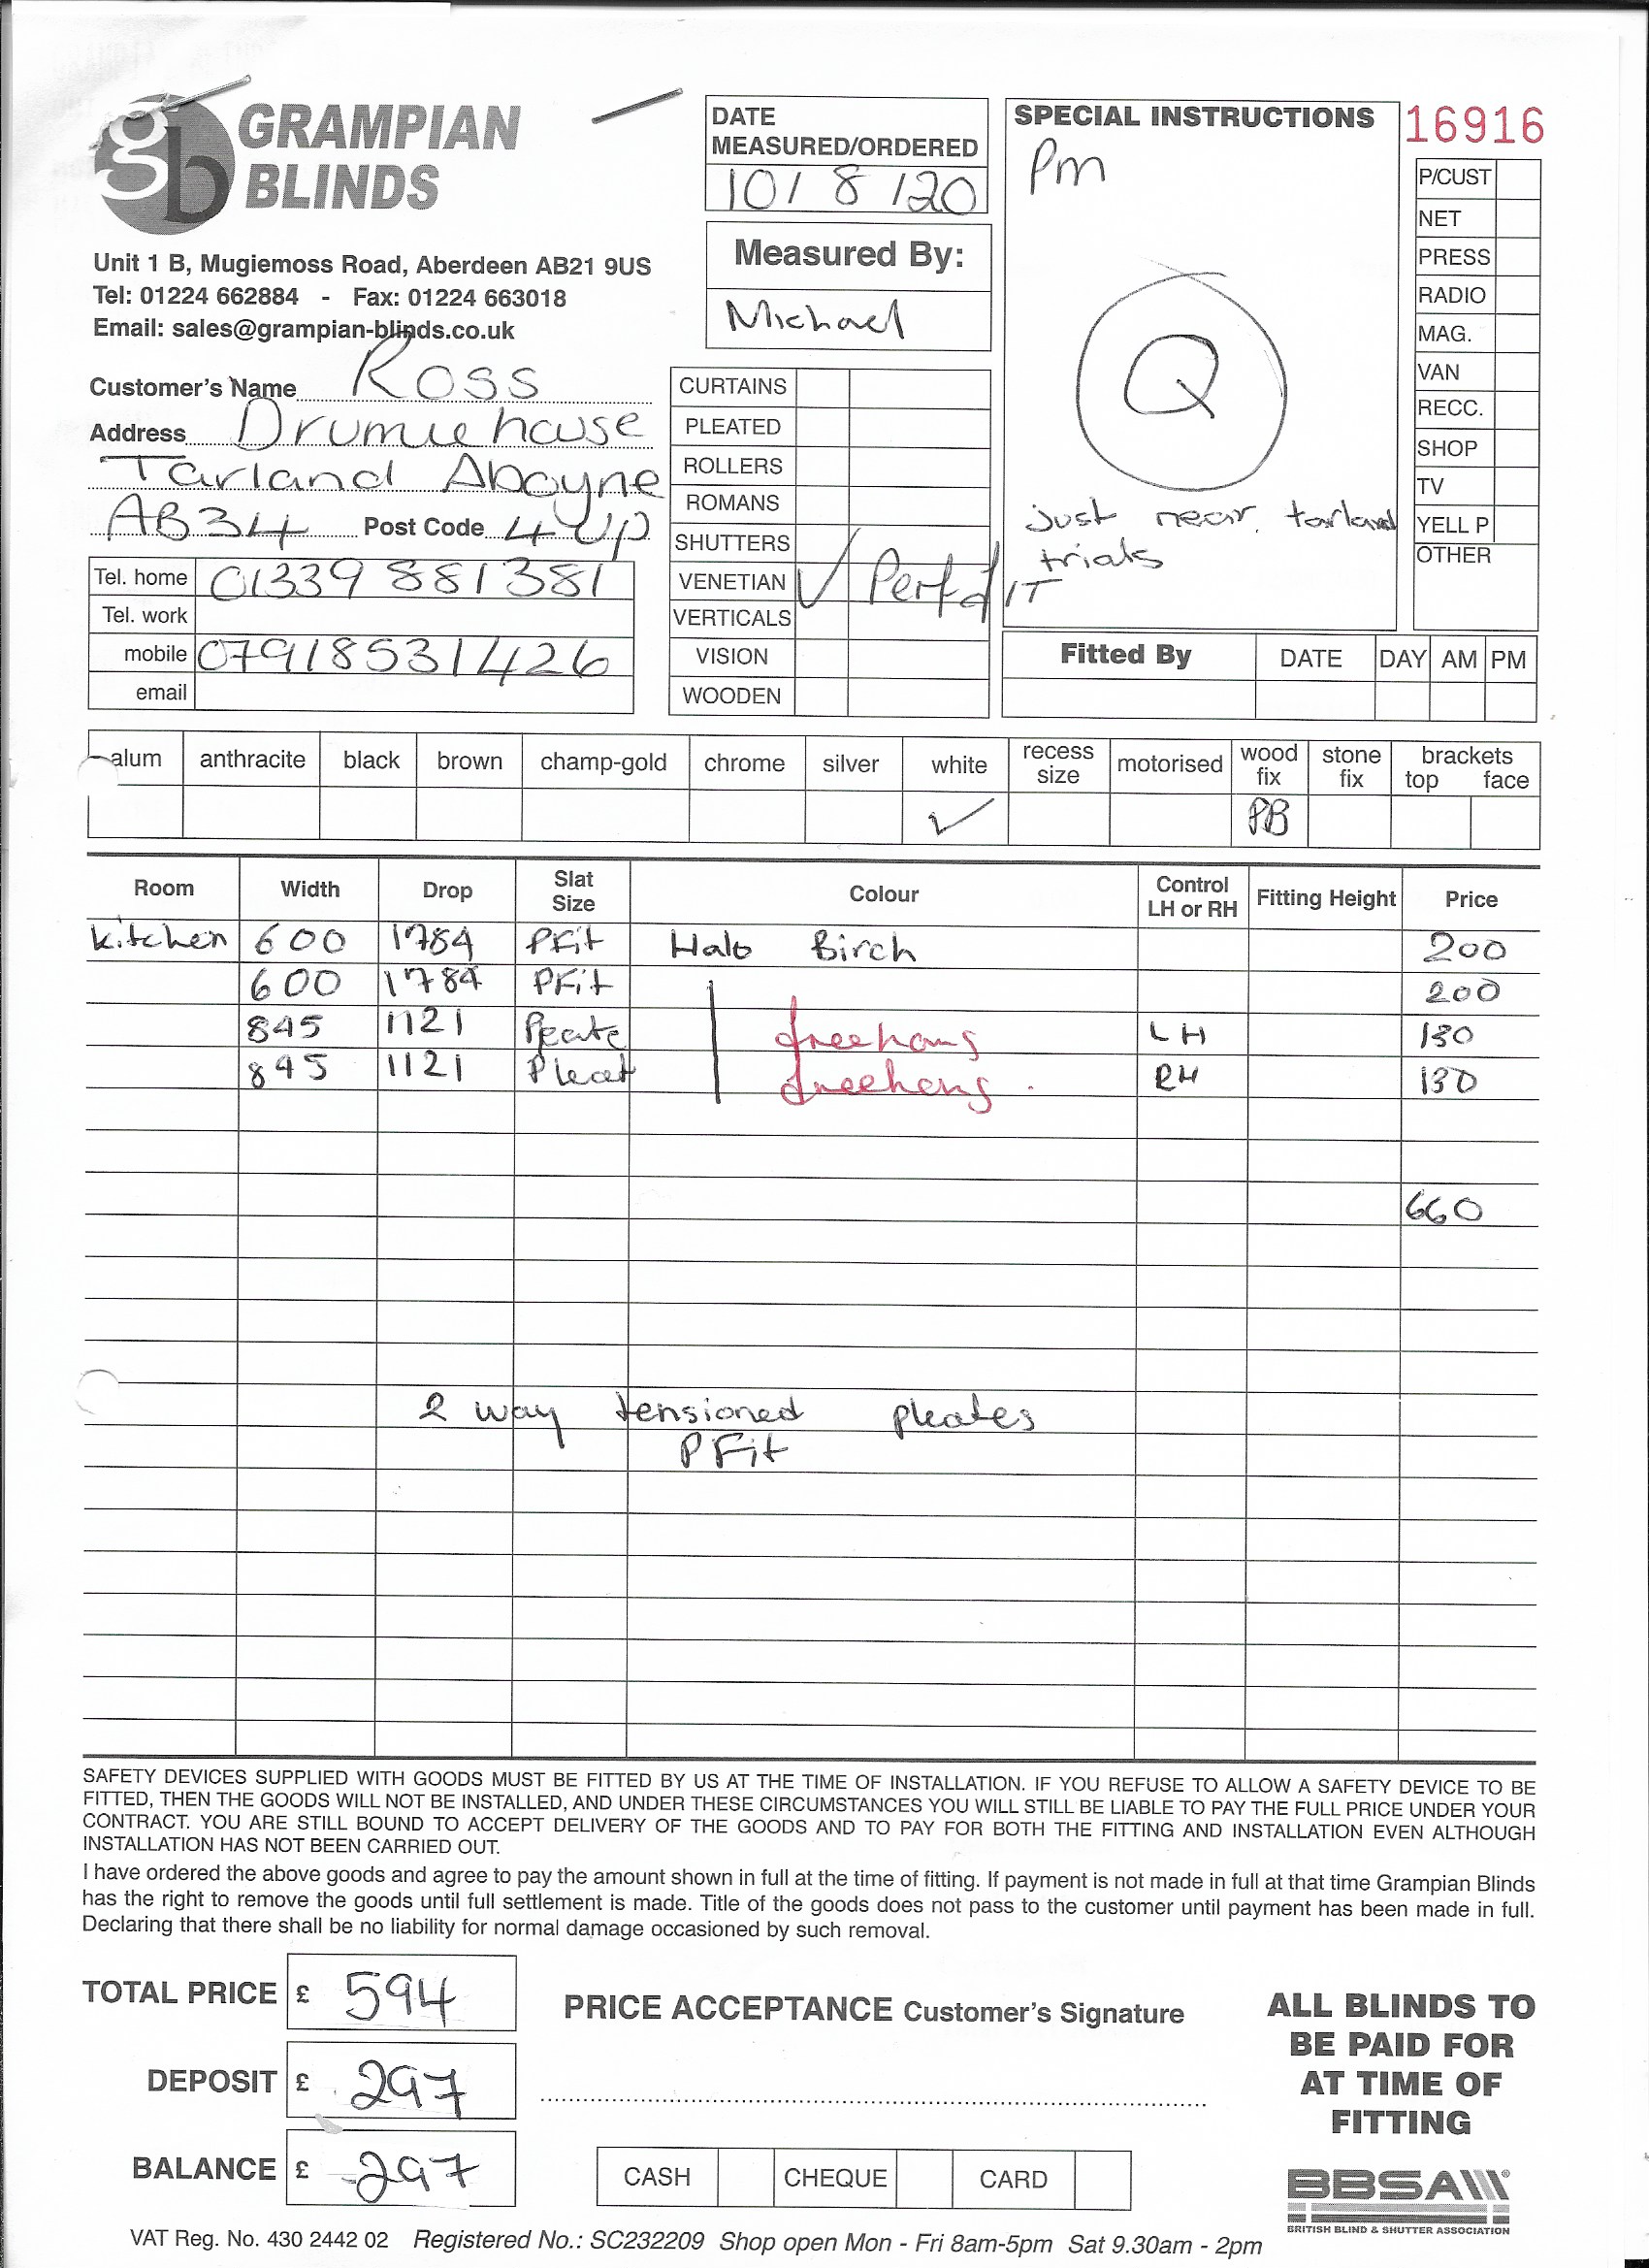 gb GRAMPIAN
BLINDS
Unit 1 B, Mugiemoss Road, Aberdeen AB21 9US
Tel: 01224 662884 - Fax: 01224 663018
Email: sales@grampian-blinds.co.uk
Customer's Name Ross
Address Drumiehouse
Tarland Aboyne
AB34 Post Code 4UP
Tel. home 01339 881381
Tel. work
mobile 07918531426
email
DATE
MEASURED/ORDERED
10/8/20
Measured By:
Michael
CURTAINS
PLEATED
ROLLERS
ROMANS
SHUTTERS
VENETIAN ✓ Perfect IT
VERTICALS
VISION
WOODEN
SPECIAL INSTRUCTIONS
Pm
Q
just near tarland
trials
16916
P/CUST
NET
PRESS
RADIO
MAG.
VAN
RECC.
SHOP
TV
YELL P
OTHER
Fitted By DATE DAY AM PM
alum anthracite black brown champ-gold chrome silver white recess size motorised wood fix stone fix brackets top face
✓ PB
Room Width Drop Slat Size Colour Control LH or RH Fitting Height Price
Kitchen 600 1784 PFit Halo Birch 200
600 1784 PFit 200
845 1121 Pleate freehang LH 130
845 1121 Pleat freehang RH 130
660
2 way tensioned pleates
PFit
SAFETY DEVICES SUPPLIED WITH GOODS MUST BE FITTED BY US AT THE TIME OF INSTALLATION. IF YOU REFUSE TO ALLOW A SAFETY DEVICE TO BE
FITTED, THEN THE GOODS WILL NOT BE INSTALLED, AND UNDER THESE CIRCUMSTANCES YOU WILL STILL BE LIABLE TO PAY THE FULL PRICE UNDER YOUR
CONTRACT. YOU ARE STILL BOUND TO ACCEPT DELIVERY OF THE GOODS AND TO PAY FOR BOTH THE FITTING AND INSTALLATION EVEN ALTHOUGH
INSTALLATION HAS NOT BEEN CARRIED OUT.
I have ordered the above goods and agree to pay the amount shown in full at the time of fitting. If payment is not made in full at that time Grampian Blinds
has the right to remove the goods until full settlement is made. Title of the goods does not pass to the customer until payment has been made in full.
Declaring that there shall be no liability for normal damage occasioned by such removal.
TOTAL PRICE £ 594
DEPOSIT £ 297
BALANCE £ 297
PRICE ACCEPTANCE Customer's Signature
CASH CHEQUE CARD
ALL BLINDS TO
BE PAID FOR
AT TIME OF
FITTING
BBSA
BRITISH BLIND & SHUTTER ASSOCIATION
VAT Reg. No. 430 2442 02 Registered No.: SC232209 Shop open Mon - Fri 8am-5pm Sat 9.30am - 2pm